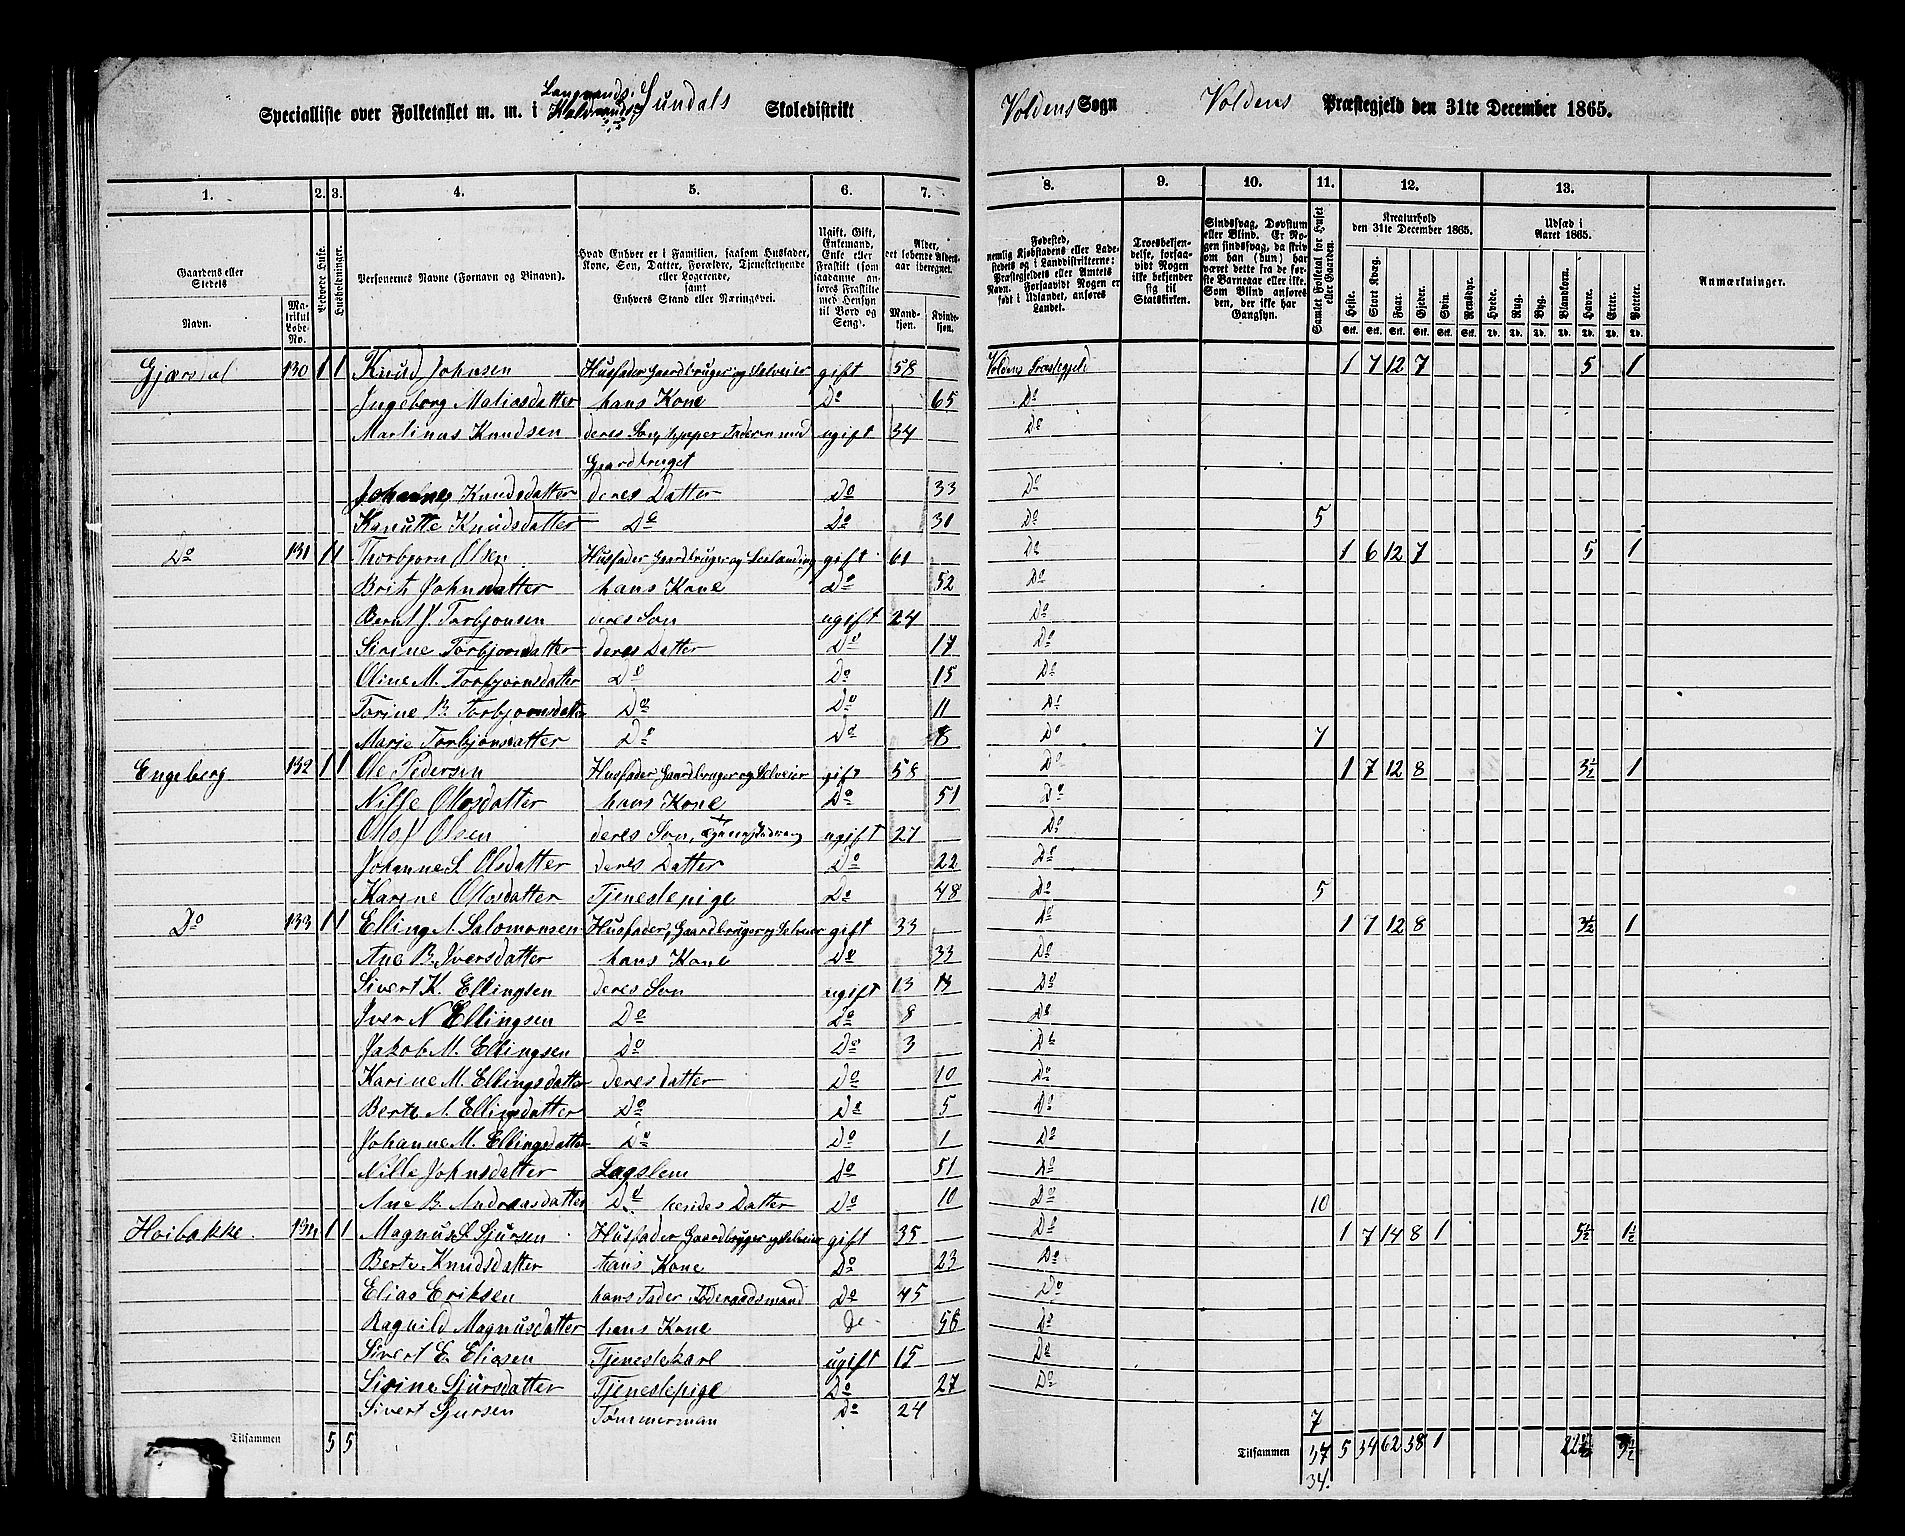 Langvands
Specialliste over Folketallet m. m. i Sundals Skoledistrikt
Voldens Sogn Voldens Præstegjeld den 31te December 1865.
1. 2. 3. 4. 5. 6. 7. 8. 9. 10. 11. 12. 13.
Gaardens eller Stedets Navn.
Matrikul Løbe-No.
Beboede Huse.
Husholdninger.
Personernes Navne (Fornavn og Binavn).
Hvad Enhver er i Familien, saasom Husfader, Kone, Søn, Datter, Forældre, Tjenestetyende eller Logerende, samt Enhvers Stand eller Næringsvei.
Ugift, Gift, Enkemand, Enke eller Fraskilt (som saadanne anføres Fraskilte med Hensyn til Bord og Seng).
Alder, det løbende Aldersaar iberegnet.
Mandkjøn. Kvindekjøn.
Fødested, nemlig Kjøbstadens eller Ladestedets og i Landdistrikterne: Præstegjeldets eller Amtets Navn. Forsaavidt Nogen er født i Udlandet, anføres Landet.
Troesbekjendelse, forsaavidt Nogen ikke bekjender sig til Statskirken.
Sindssvag, Døvstum eller Blind. Er Nogen sindssvag, da skriv om han (hun) har været dette fra de første Barneaar eller ikke. Som Blind anføres den, der ikke har Gangsyn.
Samlet Folketal for Huset eller Gaarden.
Kreaturhold den 31te December 1865.
Heste. Stort Kvæg. Faar. Gjeder. Svin. Rensdyr.
Udsæd i Aaret 1865.
Hvede. Rug. Byg. Blandkorn. Havre. Erter. Poteter.
Anmærkninger.
Gjærdal 130 1 1 Knud Johnsen Husfader Gaardbruger og Selveier gift 58 Voldens Præstegjeld 1 7 12 7 5 1
Ingeborg Matiasdatter hans Kone Do 65 Do
Martinus Knudsen deres Søn, hjælper Faderen med ugift 34 Do
Gaardbruget
Johanne Knudsdatter deres Datter Do 33 Do
Kanutte Knudsdatter Do Do 31 Do 5
Do 131 1 1 Thorbjørn Olsen Husfader Gaardbruger og Leilænding gift 61 Do 1 6 12 7 5 1
Brit Johnsdatter hans Kone Do 52 Do
Bernt J Torbjønsen deres Søn ugift 24 Do
Sirine Torbjørnsdatter deres Datter Do 17 Do
Oline M. Torbjørnsdatter Do Do 15 Do
Torine B. Torbjørnsdatter Do Do 11 Do
Marie Torbjønsdatter Do Do 8 Do 7
Engeberg 132 1 1 Ole Pedersen Husfader, Gaardbruger og Selveier gift 58 Do 1 7 12 8 3½ 1
Nille Olsdatter hans Kone Do 51 Do
Oluf Olsen deres Søn, ugift 27 Do
Johanne S. Olsdatter deres Datter Do 22 Do
Karine Olsdatter Tjenestepige Do 48 Do 5
Do 133 1 1 Elling A. Salomonsen Husfader, Gaardbruger og Selveier gift 33 Do 1 7 12 8 3½ 1
Ane B. Iversdatter hans Kone Do 33 Do
Sivert K. Ellingsen deres Søn ugift 13 13 Do
Iver N Ellingsen Do Do 8 Do
Jakob M. Ellingsen Do Do 3 Do
Karine M. Ellingsdatter deres datter Do 10 Do
Berte A. Ellingsdatter Do Do 5 Do
Johanne M. Ellingsdatter Do Do 1 Do
Nille Johnsdatter Lægslem Do 51 Do
Ane B. Andreasdatter Do hendes Datter Do 10 Do 10
Høibakke. 134 1 1 Magnus S. Sjursen Husfader Gaardbruger og Selveier gift 35 Do 1 7 14 8 1 5½ 1½
Berte Knudsdatter hans Kone Do 23 Do
Elias Eriksen hans Fader Føderaadsmand Do 45 Do
Ragnild Magnusdatter hans Kone Do 58 Do
Sivert E. Eliasen Tjenestekarl ugift 15 Do
Sirine Sjursdatter Tjenestepige Do 27 Do
Sivert Sjursen Tømmerman Do 24 7
Tilsammen 5 5 Tilsammen 37 5 34 62 38 1 22½ 5½
34.